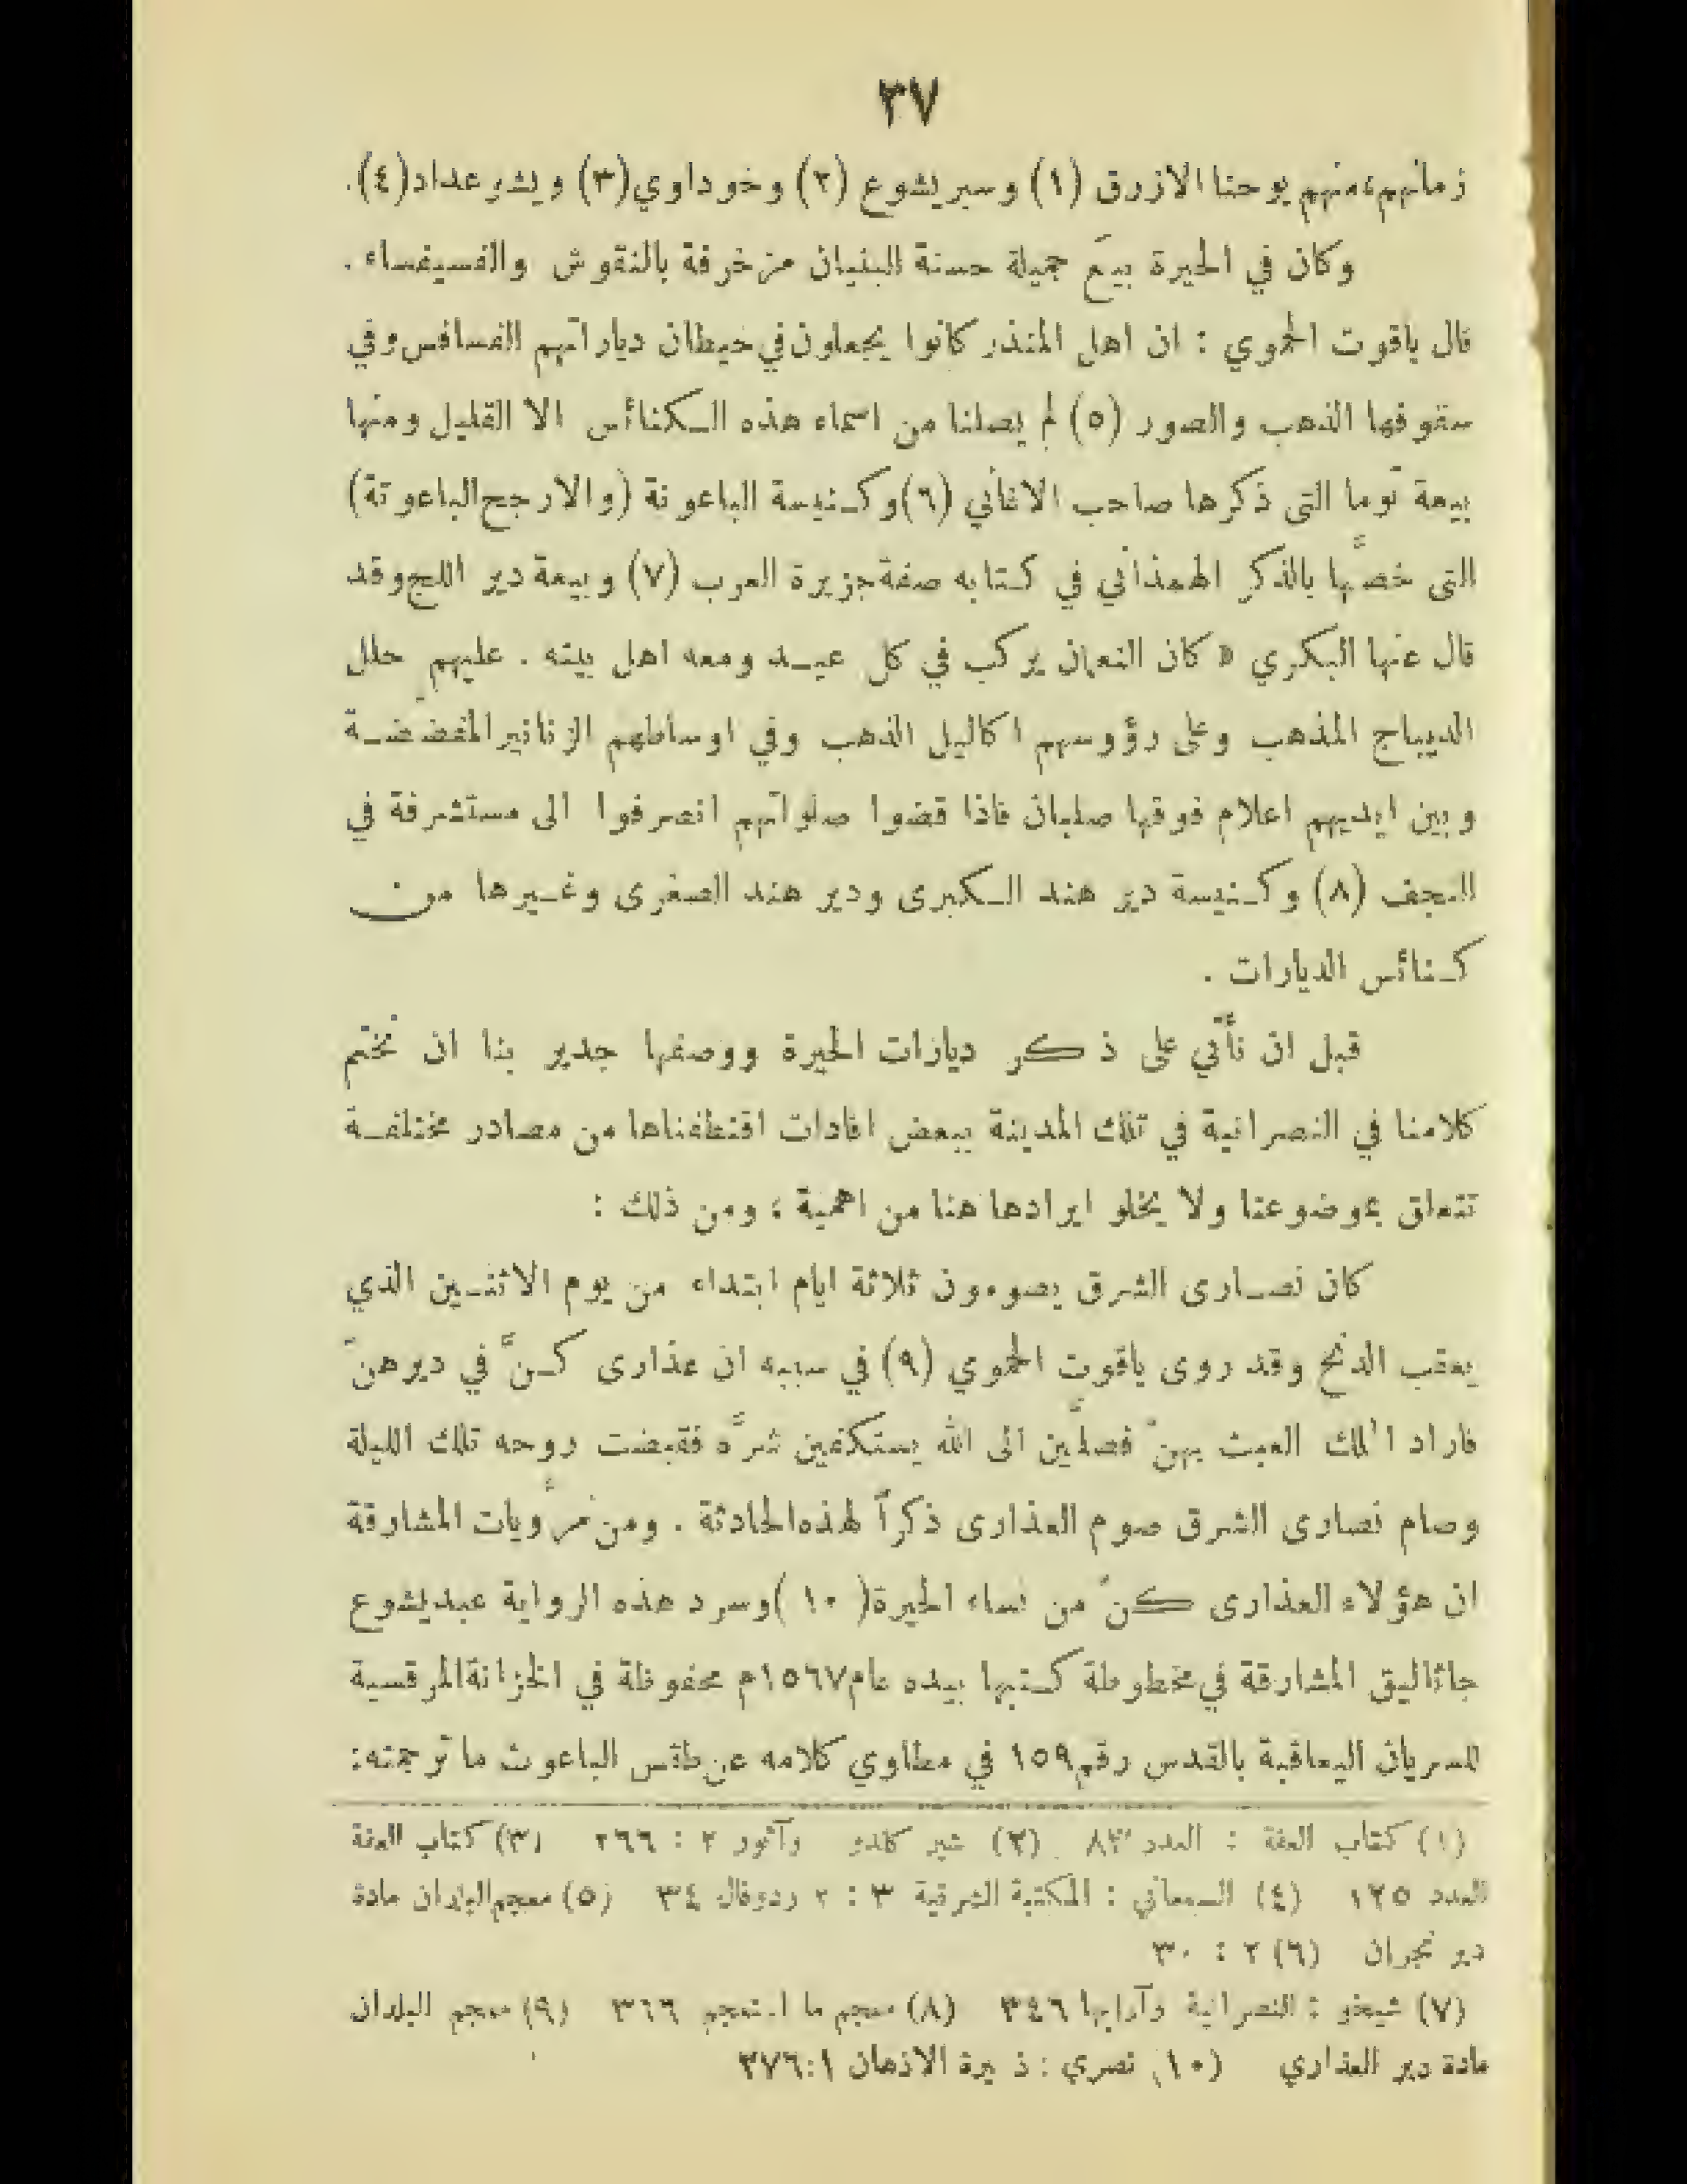 ٣٧
زمانهم، منهم يوحنا الازرق (١) وسبريشوع (٢) وخوداوي(٣) ويشوعداد(٤).
وكان في الحيرة بيَع جميلة حسنة البنيان مزخرفة بالنقوش والفسيفساء .
قال ياقوت الحموي : ان اهل المنذر كانوا يجعلون في حيطان دياراتهم الفسافس وفي
سقوفها الذهب والصور (٥) لم يصلنا من اسماء هذه الكنائس الا القليل ومنها
بيعة توما التى ذكرها صاحب الاغاني (٦) وكنيسة الباعونة (والارجح الباعوتة)
التى خصَّها بالذكر الهمذاني في كتابه صفة جزيرة العرب (٧) وبيعة دير اللج وقد
قال عنها البكري « كان النعمان يركب في كل عيد ومعه اهل بيته . عليهم حلل
الديباج المذهب وعلى رؤوسهم اكاليل الذهب وفي اوساطهم الزنانير المفضضة
وبين ايديهم اعلام فوقها صلبان فاذا قضوا صلواتهم انصرفوا الى مستشرفة في
النجف (٨) وكنيسة دير هند الكبرى ودير هند الصغرى وغيرها من
كنائس الديارات .
قبل ان نأتي على ذكر ديارات الحيرة ووصفها جدير بنا ان نختم
كلامنا في النصرانية في تلك المدينة ببعض افادات اقتطفناها من مصادر مختلفة
تتعلق بموضوعنا ولا يخلو ايرادها هنا من اهمية ؛ ومن ذلك :
كان نصارى الشرق يصومون ثلاثة ايام ابتداء من يوم الاثنين الذي
يعقب الدنح وقد روى ياقوت الحموي (٩) في سببه ان عذارى كنَّ في ديرهنّ
فاراد الملك العبث بهنّ فصلَّين الى الله يستكفين شرَّه فقبضت روحه تلك الليلة
وصام نصارى الشرق صوم العذارى ذكراً لهذه الحادثة . ومن مرويات المشارقة
ان هؤلاء العذارى كنّ من نساء الحيرة( ١٠ )وسرد هذه الرواية عبديشوع
جاثاليق المشارقة في مخطوطة كتبها بيده عام ١٥٦٧م محفوظة في الخزانة المرقسية
للسريان اليعاقبة بالقدس رقم ١٥٩ في مطاوي كلامه عن طقس الباعوث ما ترجمته:
(١) كتاب العفة : العدد ٨٣ (٢) شير كلدو وآثور ٢ : ٢٦٦ (٣) كتاب العفة
العدد ١٢٥ (٤) السمعاني : المكتبة الشرقية ٣ : ٢ ردوفال ٣٤ (٥) معجم البلدان مادة
دير نجران (٦) ٢ : ٣٠
(٧) شيخو : النصرانية وآدابها ٣٤٦ (٨) معجم ما استعجم ٣٦٦ (٩) معجم البلدان
مادة دير العذاري (١٠) نصري : ذ يرة الاذهان ٣٧٦:١